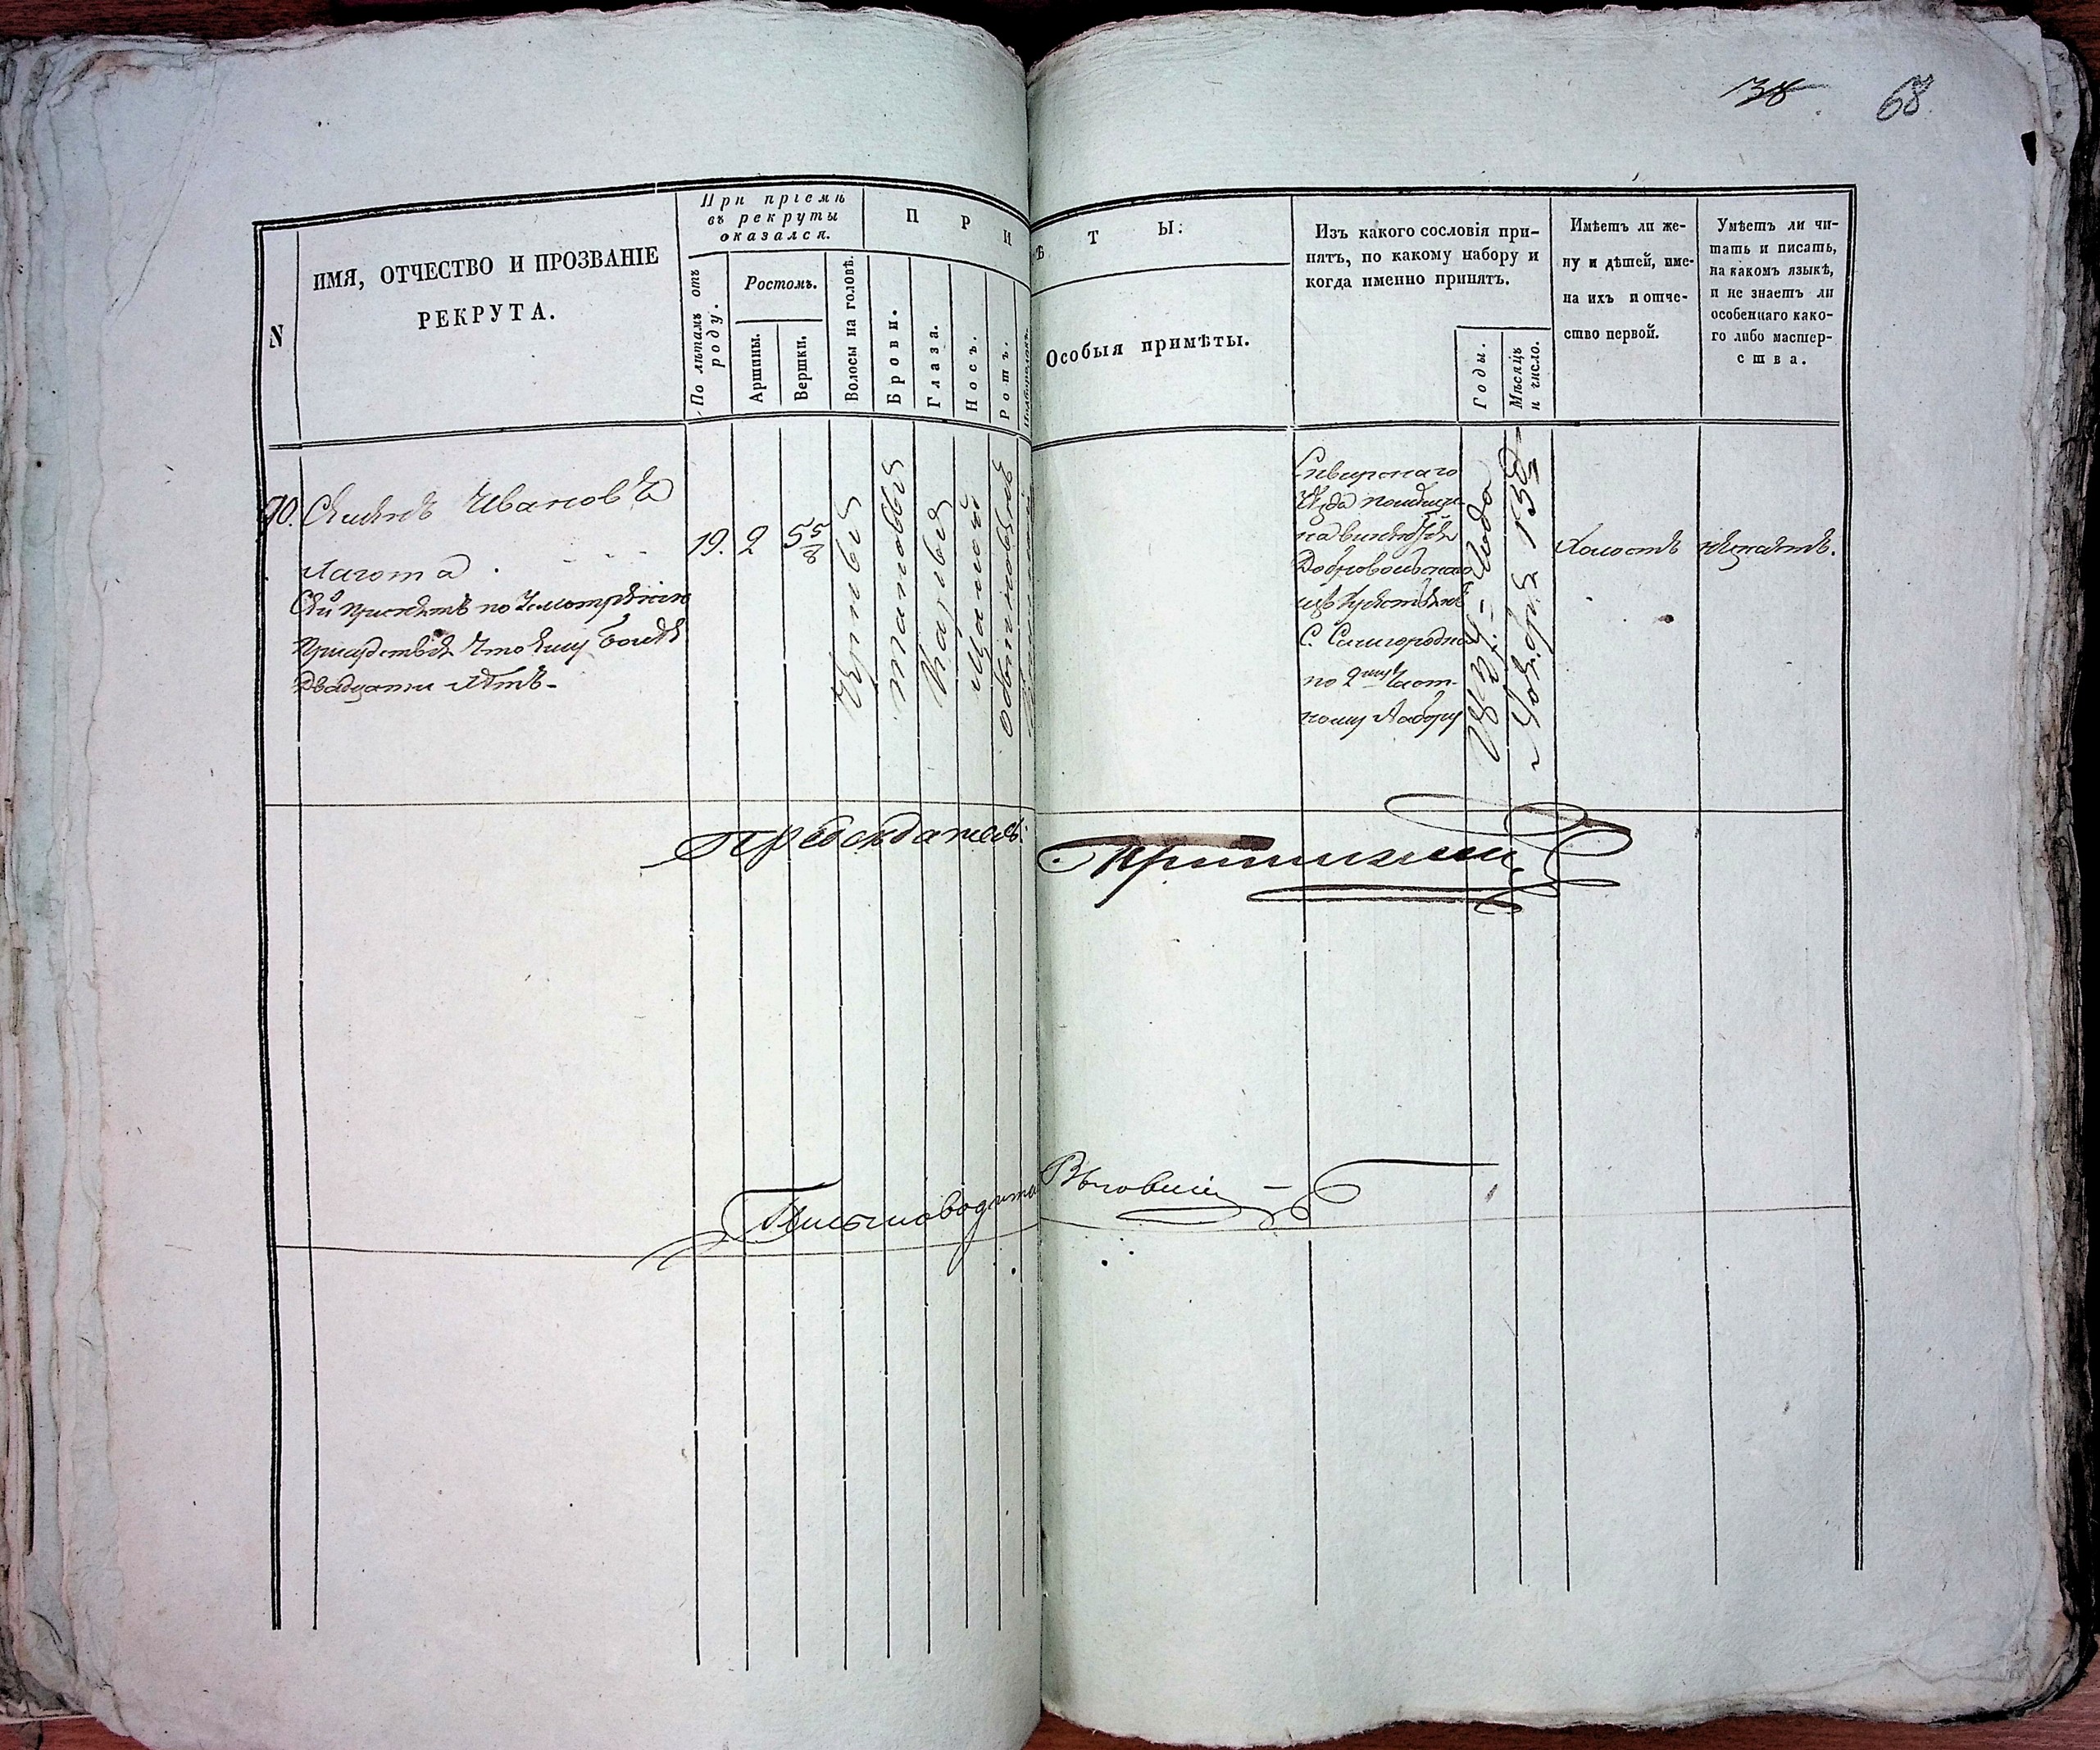 68
N
ИМЯ, ОТЧЕСТВО И ПРОЗВАНІЕ
РЕКРУТА.
При пріемѣ
въ рекруты
оказался.
По лѣтамъ отъ
роду.
Ростомъ.
Аршины.
Вершки.
П Р И
Волосы на головѣ.
Брови.
Глаза.
Носъ.
Ротъ.
Подбородокъ.
Ѣ Т Ы:
Особыя примѣты.
Изъ какого сословія при-
нятъ, по какому набору и
когда именно принятъ.
Годы.
Мѣсяцъ
и число.
Имѣетъ ли же-
ну и дѣтей, име-
на ихъ и отче-
ство первой.
Умѣетъ ли чи-
тать и писать,
на какомъ языкѣ,
и не знаетъ ли
особеннаго како-
го либо мастер-
ства.
70.
Семенъ Ивановъ
Лагота
Сей принятъ по усмотренію
Присудствія что ему более
Двадцати летъ
19.
2
5 5/8
Черныя
Таковыя
Карыя
Малой
обыкновеной
Сквирскаго
уезда помещи
С.
по 2му част-
ному Набору
Года
Ноября 13
Холостъ
незнаетъ.
Председатель:
Письмоводитель